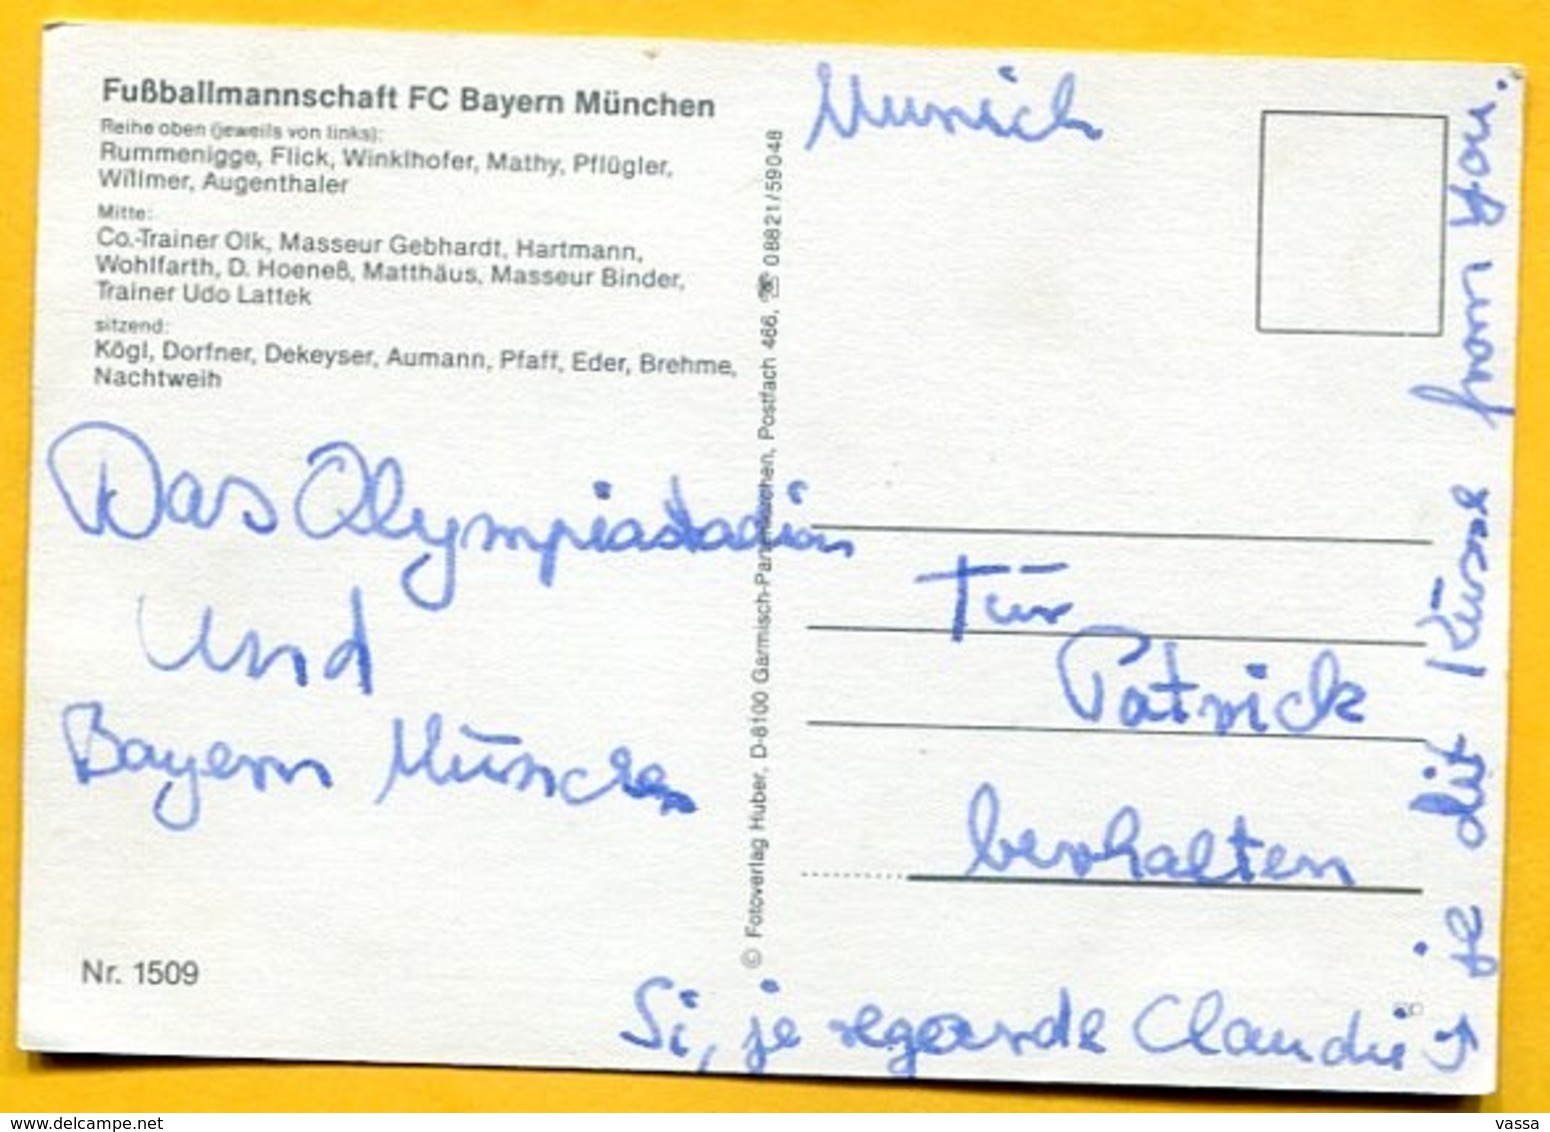 Fußballmannschaft FC Bayern München
Reihe oben (jeweils von links):
Rummenigge, Flick, Winklhofer, Mathy, Pflügler,
Willmer, Augenthaler
Mitte:
Co.-Trainer Olk, Masseur Gebhardt, Hartmann,
Wohlfarth, D. Hoeneß, Matthäus, Masseur Binder,
Trainer Udo Lattek
sitzend:
Kögl, Dorfner, Dekeyser, Aumann, Pfaff, Eder, Brehme,
Nachtweih
Das Olympiastadion
und
Bayern München
Nr. 1509
© Fotoverlag Huber, D-8100 Garmisch-Partenkirchen, Postfach 466, ☏ 08821/59048
Munich
Für
Patrick
berhalten
Si, je regarde Claudie
je dit Küsse from you.
www.delcampe.net
vassa